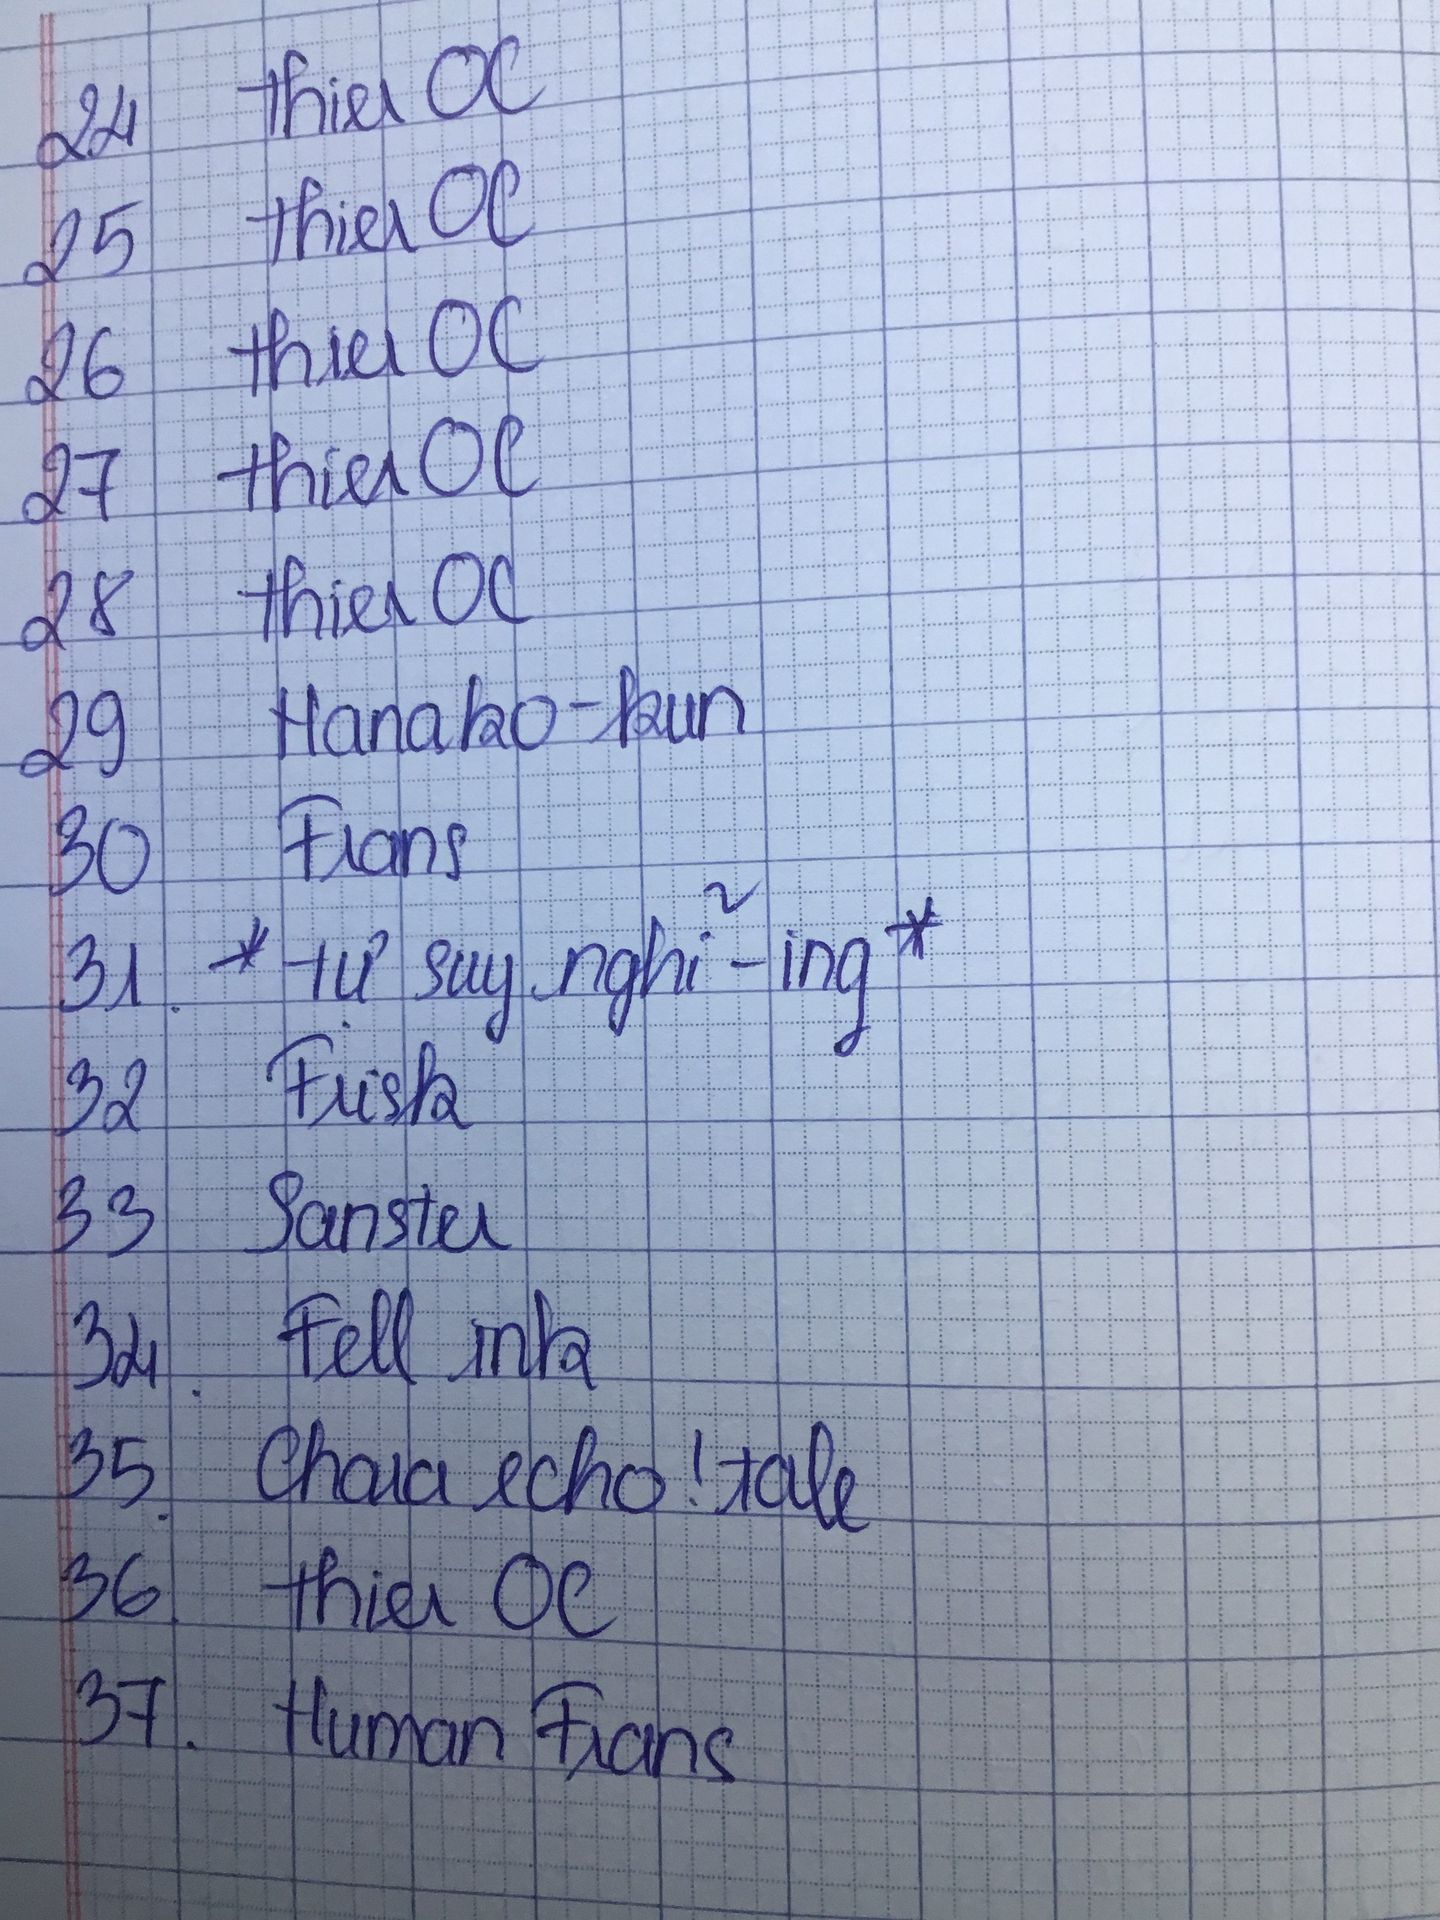 24 thier OC
25 thier OC
26 thier OC
27 thier OC
28 thier OC
29 Hanako-kun
30 Frans
31. *tự suy nghĩ-ing*
32 Frisk
33 Sanster
34. Fell ink
35. Chara echo!tale
36. thier OC
37. Human Frans